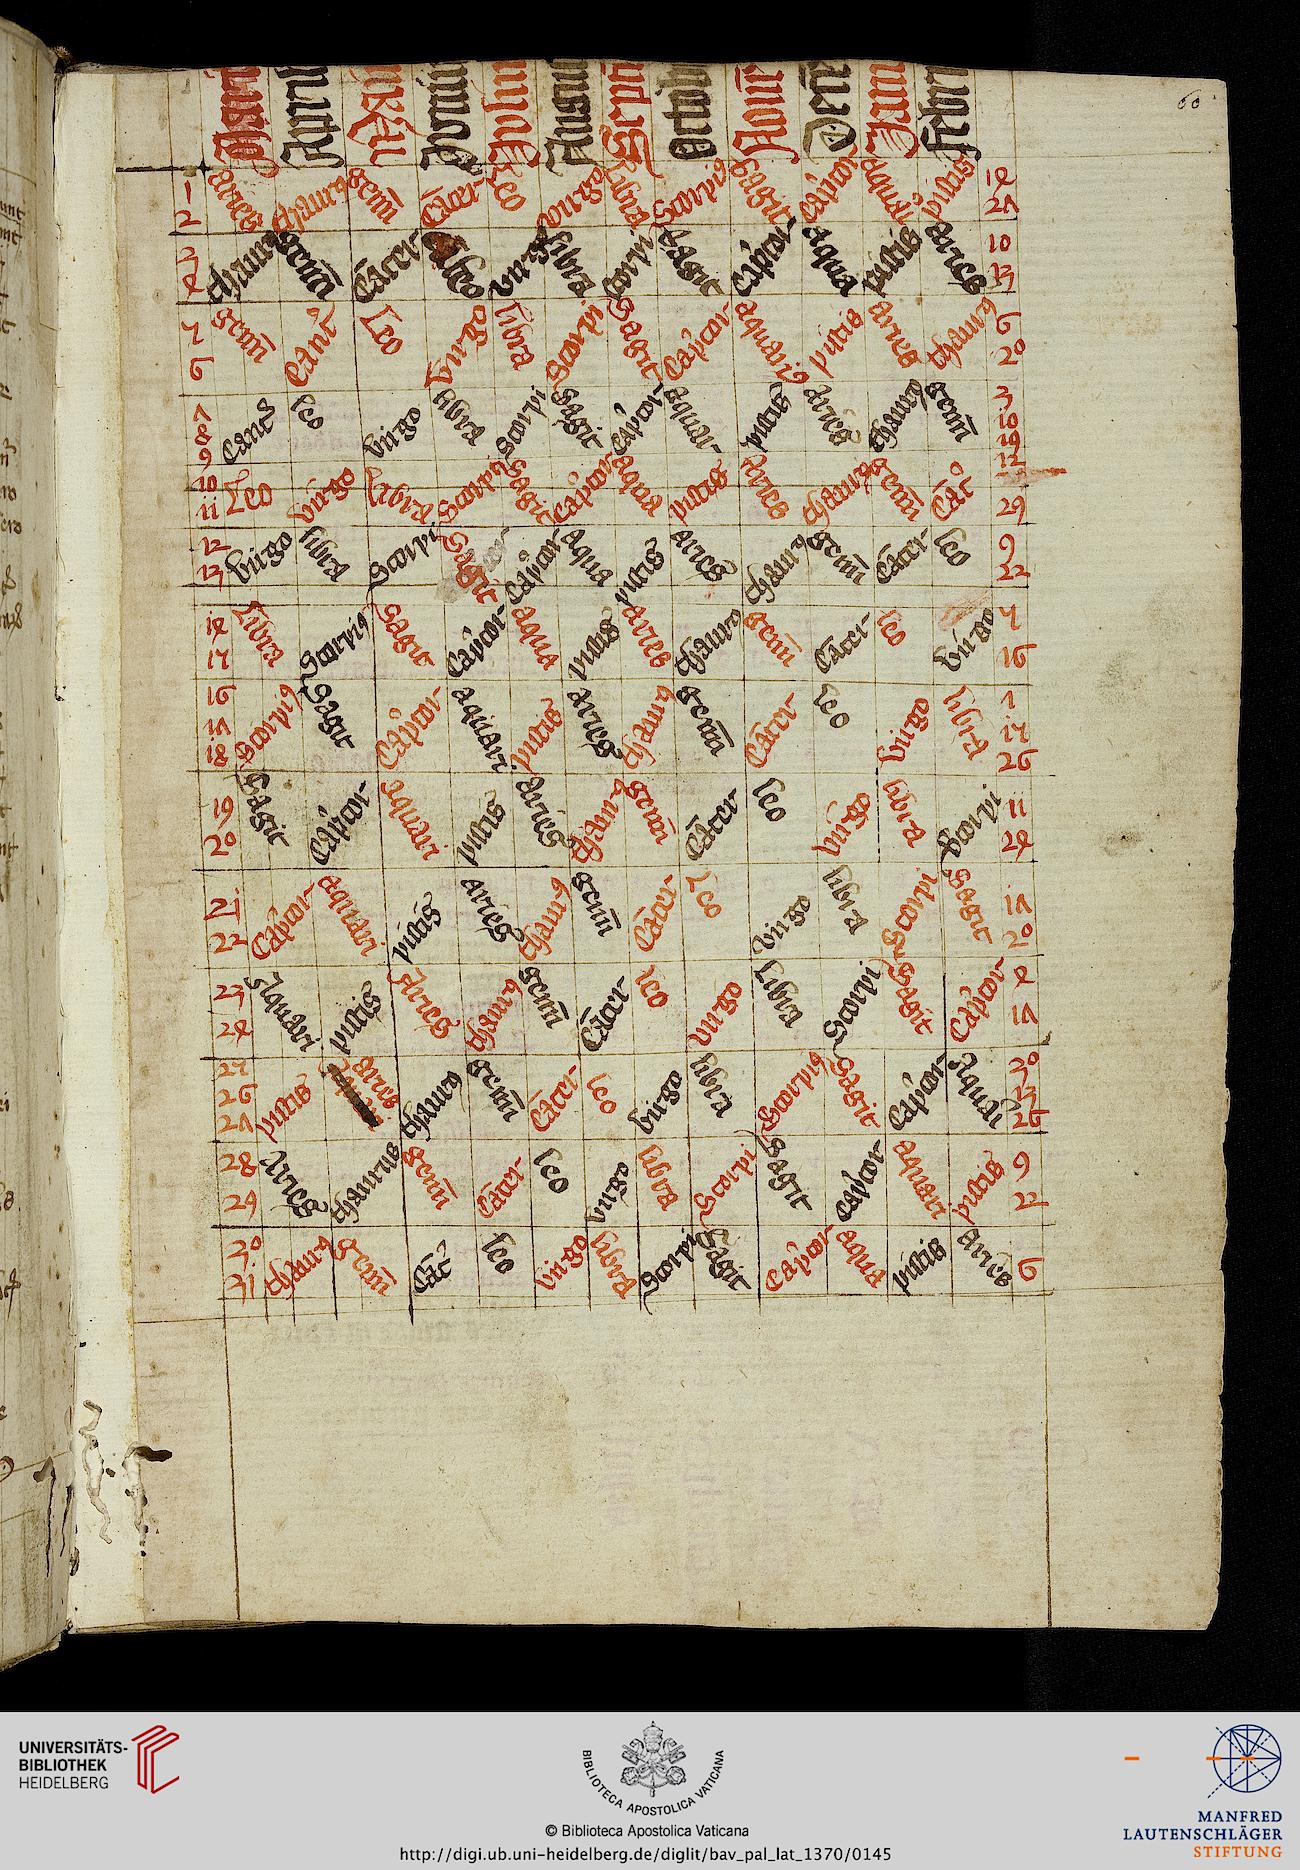 60
1 2 aries thaurꝰ gemī Cācer leo virgo libra Scorpiꝰ Sagit Capicor aquari piscis 14 27
3 4 thaurꝰ gemī Cācer leo virgo libra Scorpi Sagit Capicor Aqua piscis Aries 10 13
5 6 gemī Cancꝰ Leo virgo libra Scorpi Sagit Capicor aquariꝰ piscis aries thaurꝰ 6 20
7 8 9 Cancꝰ leo virgo libra Scorpi Sagit Capicor aquari piscis aries thaurꝰ gemī 3
10 11 Leo virgo Libra Scorpi Sagit Capicor aqua piscis aries thaurꝰ gemī Cāc 29
12 13 virgo libra Scorpi Sagit Capicor aqua piscis aries thaurꝰ gemī Cācer leo 9 22
14 15 Libra Scorpiꝰ Sagit Capicor aqua piscis aries thaurꝰ gemī Cācer leo virgo 5 16
16 17 18 Scorpiꝰ Sagit Capicor aquari piscis aries thaurꝰ gemī Cācer leo virgo libra 1 15 26
19 20 Sagit Capicor aquari piscis aries thaurꝰ gemī Cācer leo virgo libra Scorpi 11 24
21 22 Capicor aquari piscis aries thaurꝰ gemī Cācer Leo virgo libra Scorpi Sagit 17 20
23 24 Aquari piscis Aries thaurꝰ gemī Cācer leo virgo Libra Scorpi Sagit Capicor 4 17
25 26 27 piscis aries thaurꝰ gemī Cācer leo virgo libra Scorpiꝰ Sagit Capicor Aquari 30 13 26
28 29 Aries thaurus gemī Cācer leo virgo libra Scorpi Sagit Capicor aquari piscis 9 22
30 31 thaurꝰ gemī Cāc leo virgo libra Scorpi Sagit Capicor aqua piscis Aries 6
UNIVERSITÄTS-
BIBLIOTHEK
HEIDELBERG
BIBLIOTECA APOSTOLICA VATICANA
© Biblioteca Apostolica Vaticana
http://digi.ub.uni-heidelberg.de/diglit/bav_pal_lat_1370/0145
MANFRED
LAUTENSCHLÄGER
STIFTUNG